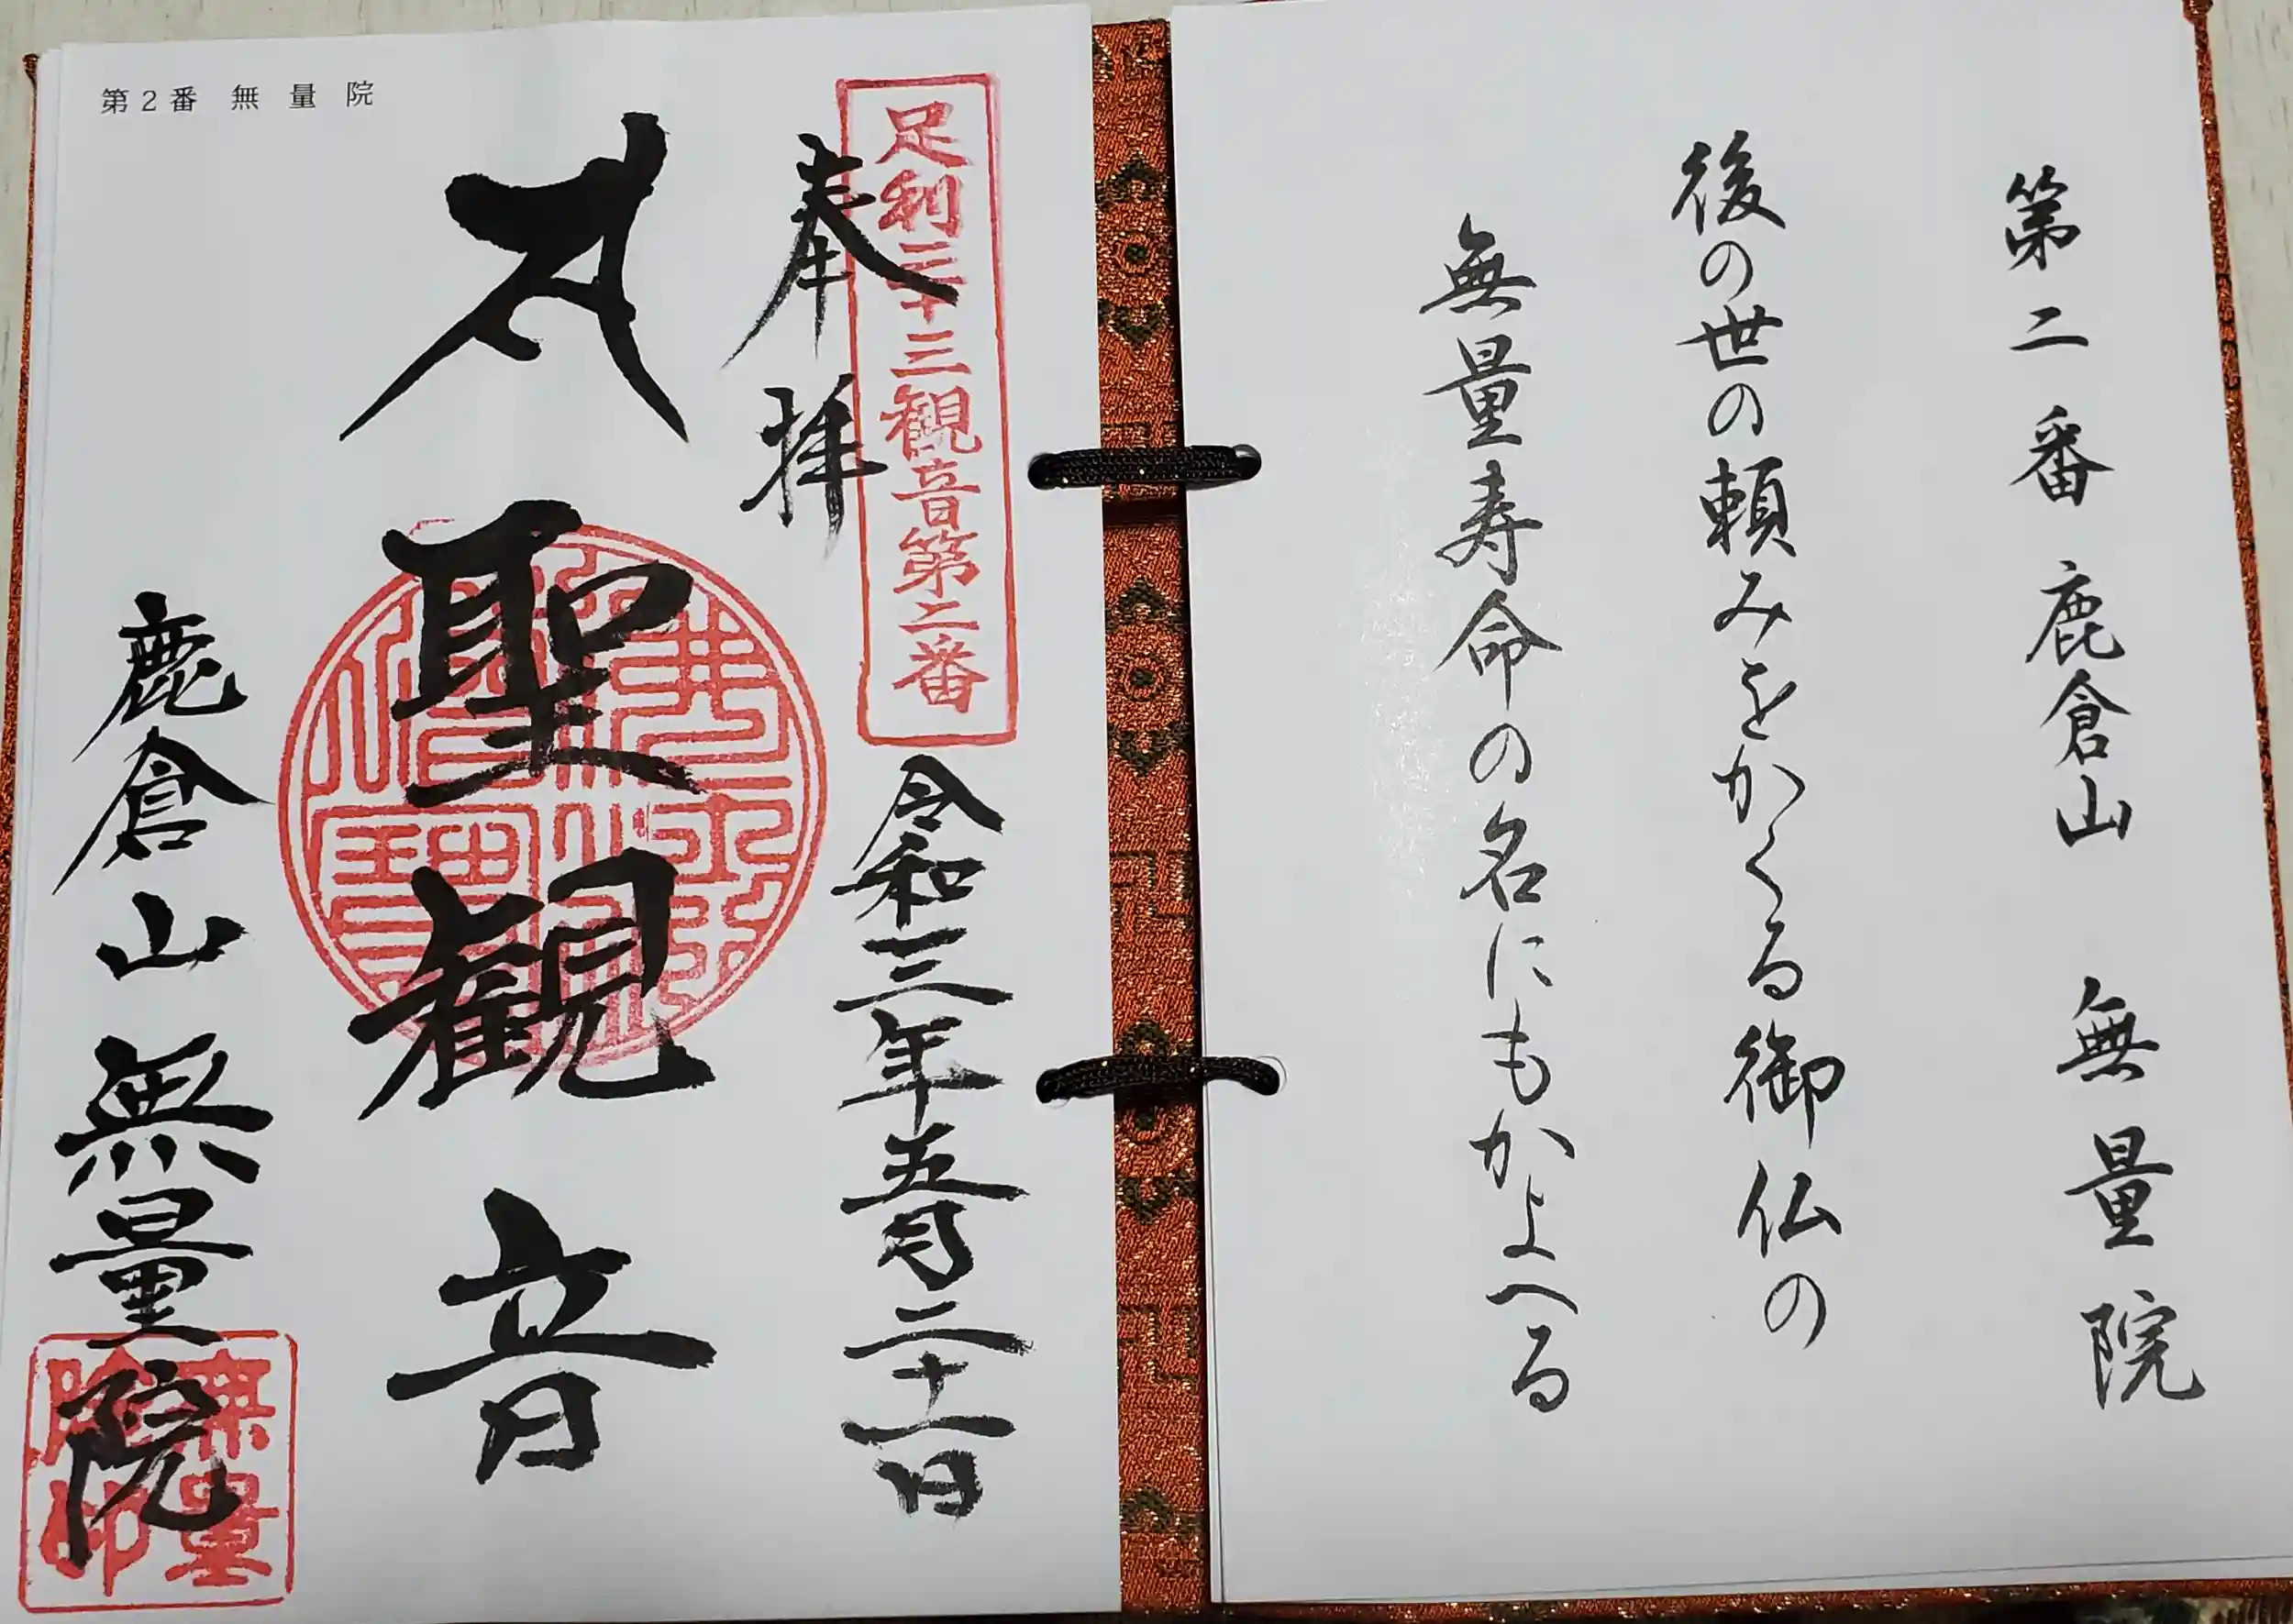 第二番 鹿倉山 無量院
後の世の頼みをかくる御仏の
無量寿命の名にもかよへる
第2番 無量院
足利三十三観音第二番
奉拝
令和三年五月二十一日
聖観音
鹿倉山 無量院
無量院印